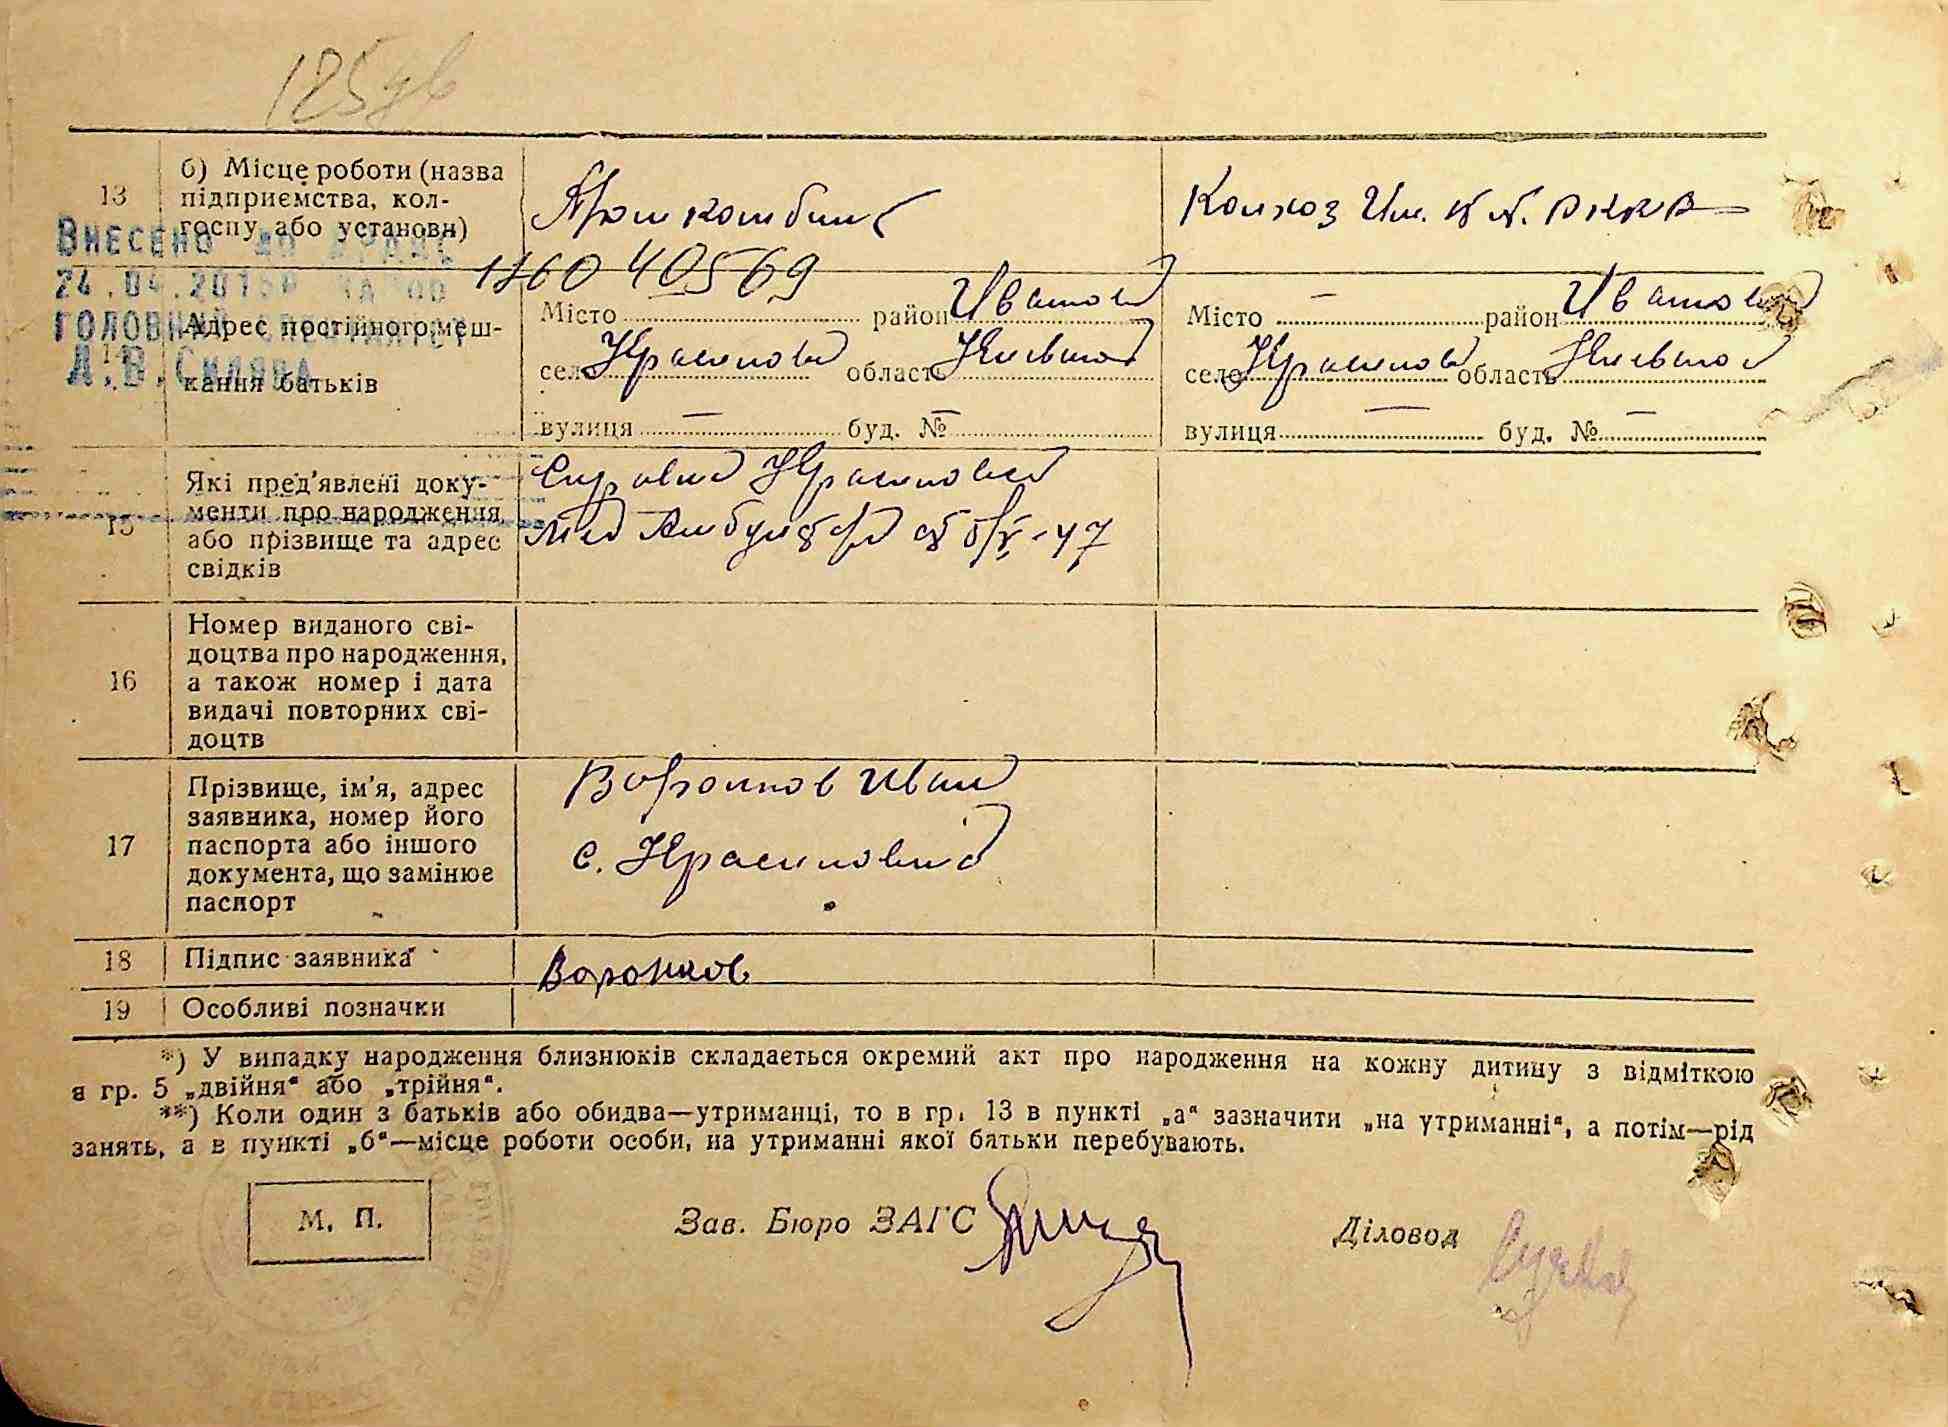 125 зв
13
б) Місце роботи (назва
підприємства, кол-
госпу або установи)
Промкомбинат
Колхоз Им. ВККВ
Внесено до ДРАЦС
24.04.201
головний спеціаліст
Д.В. Склява
1160 40569
14
Адрес постійного меш-
кання батьків
Місто район Иванков
село Красиловка область Киевской
вулиця — буд. № —
Місто — район Иванков
село Красиловка область Киевской
вулиця — буд. № —
15
Які пред'явлені доку-
менти про народження
або прізвище та адрес
свідків
Справка Красиловской
Мед Амбулатории от 6/V-47
16
Номер виданого сві-
доцтва про народження,
а також номер і дата
видачі повторних сві-
доцтв
17
Прізвище, ім'я, адрес
заявника, номер його
паспорта або іншого
документа, що замінює
паспорт
Воронков Иван
с. Красиловка
18
Підпис заявника
Воронков
19
Особливі позначки
*) У випадку народження близнюків складається окремий акт про народження на кожну дитину з відміткою
в гр. 5 „двійня“ або „трійня“.
**) Коли один з батьків або обидва—утриманці, то в гр. 13 в пункті „а“ зазначити „на утриманні“, а потім—рід
занять, а в пункті „б“—місце роботи особи, на утриманні якої батьки перебувають.
М. П.
Зав. Бюро ЗАГС
Діловод